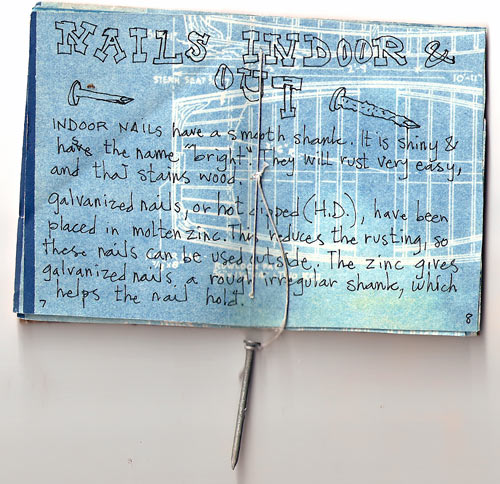 NAILS INDOOR &
OUT
STERN SEAT
10'-4"
INDOOR NAILS have a smooth shank. It is shiny &
has the name "bright". They will rust very easy,
and that stains wood.
galvanized nails, or hot dipped (H.D.), have been
placed in molten zinc. This reduces the rusting, so
these nails can be used outside. The zinc gives
galvanized nails a rough irregular shank, which
helps the nail hold.
7
8